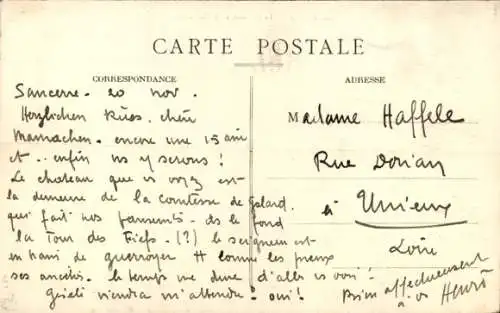 CARTE POSTALE
CORRESPONDANCE
ADRESSE
Sancerre - 20 nov.
Herzlichen Kuss, chère
Mamachen - encore une 15 aine
et .. enfin ns y serons !
Le chateau que vs voyez est
la demeure de la comtesse de
qui fait nos - ds le fond
la Tour des Fiefs - (?) le seigneur est
en train de guerroyer comme les preux
ses - le temps me dure d'aller vs voir !
viendra m'attendre ! oui !
Bien affectueusement
à vs Henri
Madame Haffele
Rue Dorian
à Unieux
Loire